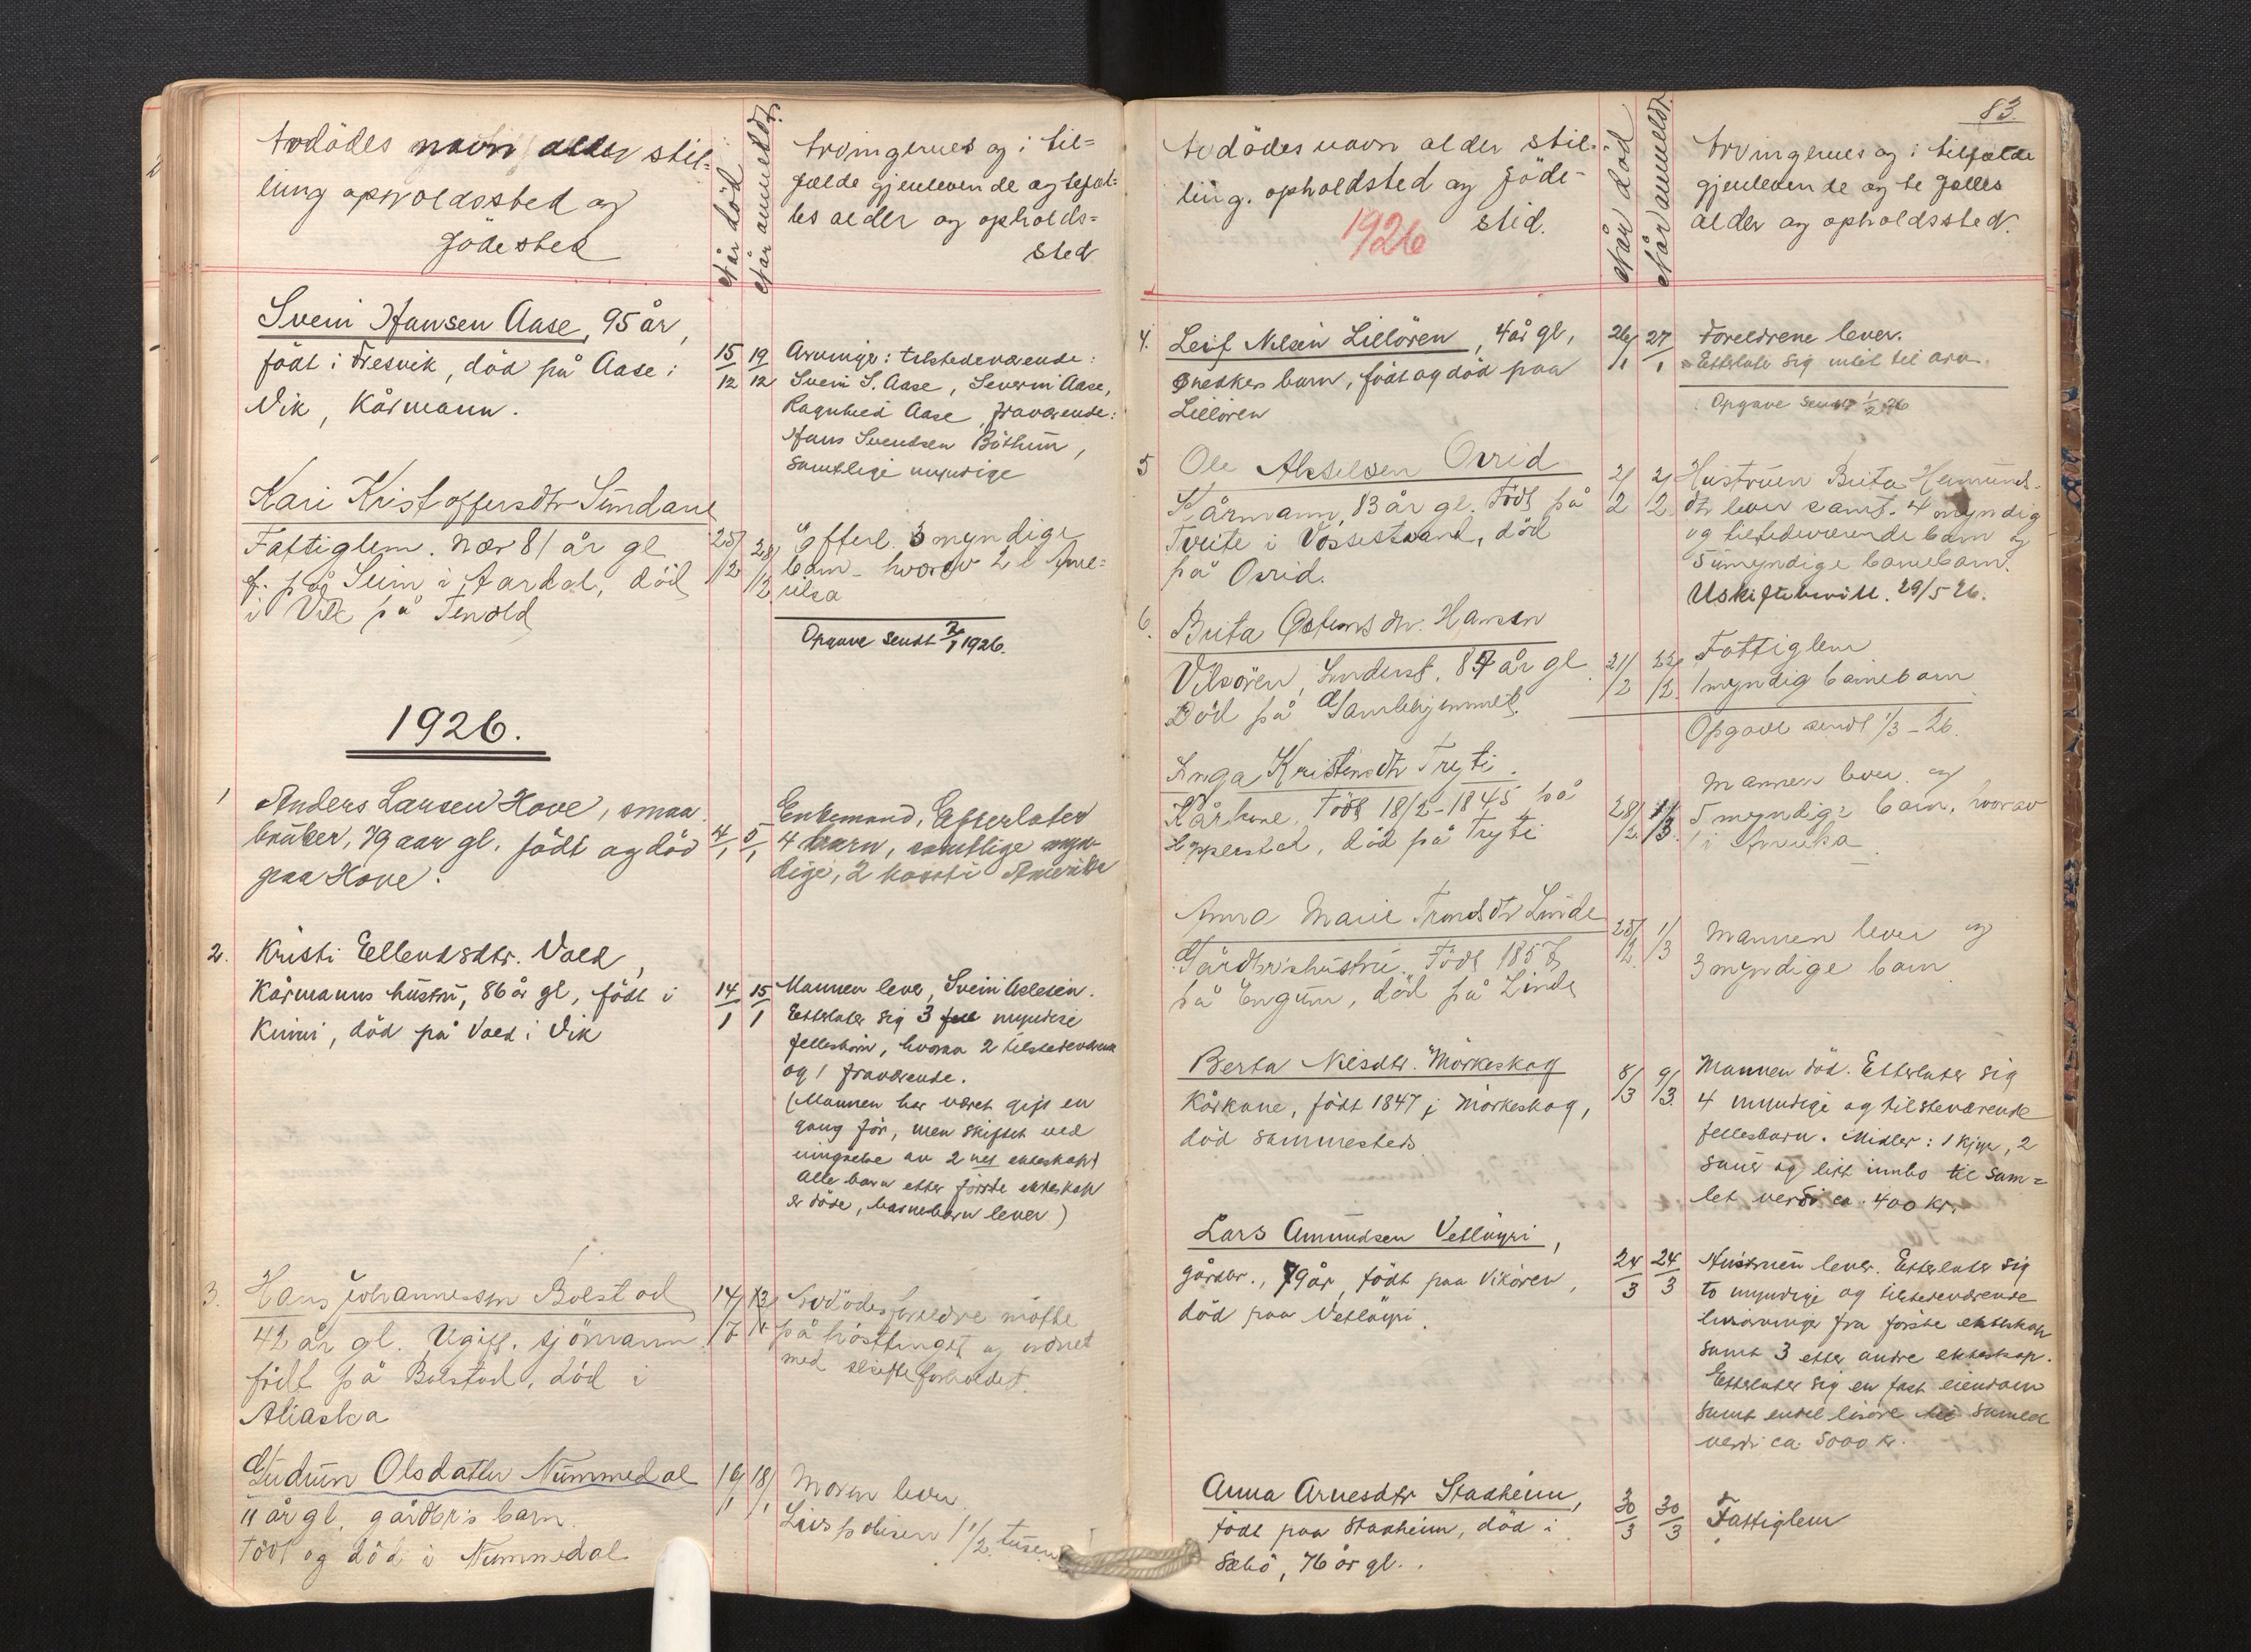 Avdödes navn alder stil=
ling opholdssted og
födested
Når död
Når anmeldt.
Arvingernes og i til=
fælde gjenlevende ægtefæl=
les alder og opholds=
sted
Svein Hansen Aase, 95 år,
födt i Fresvik, död på Aase i
Vik, Kårmann.
15/12
19/12
Arvinger: tilstedeværende:
Svein S. Aase, Severin Aase,
Ragnhild Aase, fraværende:
Hans Svendsen Böthun,
samtlige myndige
Kari Kristoffersdtr Sundane
Fattiglem. Nær 81 år gl
f. på Seim i Aardal, död
i Vik på Tenold
25/12
28/12
Efterl. 3 myndige
barn - hvorav 2 i Ame=
rika
Opgave sendt 2/1 1926.
1926.
1
Anders Larsen Hove, smaa
bruker, 79 aar gl. födt og död
paa Hove.
4/1
5/1
Enkemand, Efterlater
4 barn, samtlige myn-
dige, 2 barn i Amerika
2.
Kristi Ellendsdtr. Vold,
Kårmanns hustru, 86 år gl, födt i
Kinni, död på Vold i Vik
14/1
15/1
Mannen lever, Svein Aslesen.
Etterlater sig 3 myndige
fellesbarn, hvorav 2 tilstedeværende
og 1 fraværende.
(Mannen har været gift en
gang för, men skiftet ved
inngåelse av 2net ekteskap
Alle barn etter förste ekteskap
er döde, barnebarn lever)
3.
Hans Johannessen Bolstad
42 år gl. Ugift. sjömann
födt på Bolstad, död i
Aliaska
14/7
13/
Avdödes foreldre mötte
på hösttinget og ordnet
med skifteforholdet.
Gudrun Olsdatter Nummedal
11 år gl. gårdbr's barn.
Födt og död i Nummedal
16/1
18/1
Moren lever
1 1/2 tusen
83.
Avdödes navn alder stil-
ling. opholdsted og föde-
sted.
1926
Når död
Når anmeldt.
Arvingernes og i tilfælde
gjenlevende ægtefælles
alder og opholdssted.
4.
Leif Nilsen Lillören, 4 år gl,
Snedkers barn, födt og död paa
Lillören
26/1
27/1
Foreldrene lever.
Etterlater sig intet til arv.
Opgave sendt 1/2 26
5
Ole Akselsen Orrid
Kårmann, 83 år gl. Födt på
Tveite i Vossestrand, död
på Orrid.
2/2
2/2
Hustruen Brita Hermunds-
dtr lever samt 4 myndig
og tilstedeværende barn og
5 umyndige barnebarn.
Uskiftebevill. 29/5 26.
6.
Brita Östensdtr. Hansen
Viksören, Underst. 87 år gl
Död på Gamlehjemmet.
21/2
22/2
Fattiglem
1 myndig barnebarn
Opgave sendt 1/3 - 26.
Inga Kristensdtr Tryti.
Kårkone. Födt 18/2-1845 på
Hopperstad, död på Tryti
28/2
1/3
Mannen lever og
5 myndige barn, hvorav
1 i Amerika
Anna Marie Trondsdtr Linde
Gårdbr's hustru. Födt 1857
på Engum, död på Linde
25/2
1/3
Mannen lever og
3 myndige barn
Berta Nilsdtr. Mörkeskog
Kårkone, födt 1847 i Mörkeskog,
död sammesteds
8/3
9/3
Mannen död. Etterlater sig
4 myndige og tilsteværende
fellesbarn. Midler: 1 kyr, 2
sauer og litt innbo til sam=
let verdi ca. 400 kr.
Lars Amundsen Vetlöyri,
gårdbr., 79 år, födt paa Vikören,
död paa Vetlöyri.
24/3
24/3
Hustruen lever. Etterlater sig
to myndige og tilstedeværende
livsarvinger fra förste ekteskap
samt 3 etter andre ekteskap.
Etterlater sig en fast eiendom
samt endel lösöre til samlet
verdi ca 5000 kr.
Anna Arnesdtr Stadheim,
födt paa Stadheim, död i
Sæbö, 76 år gl.
30/3
30/3
Fattiglem